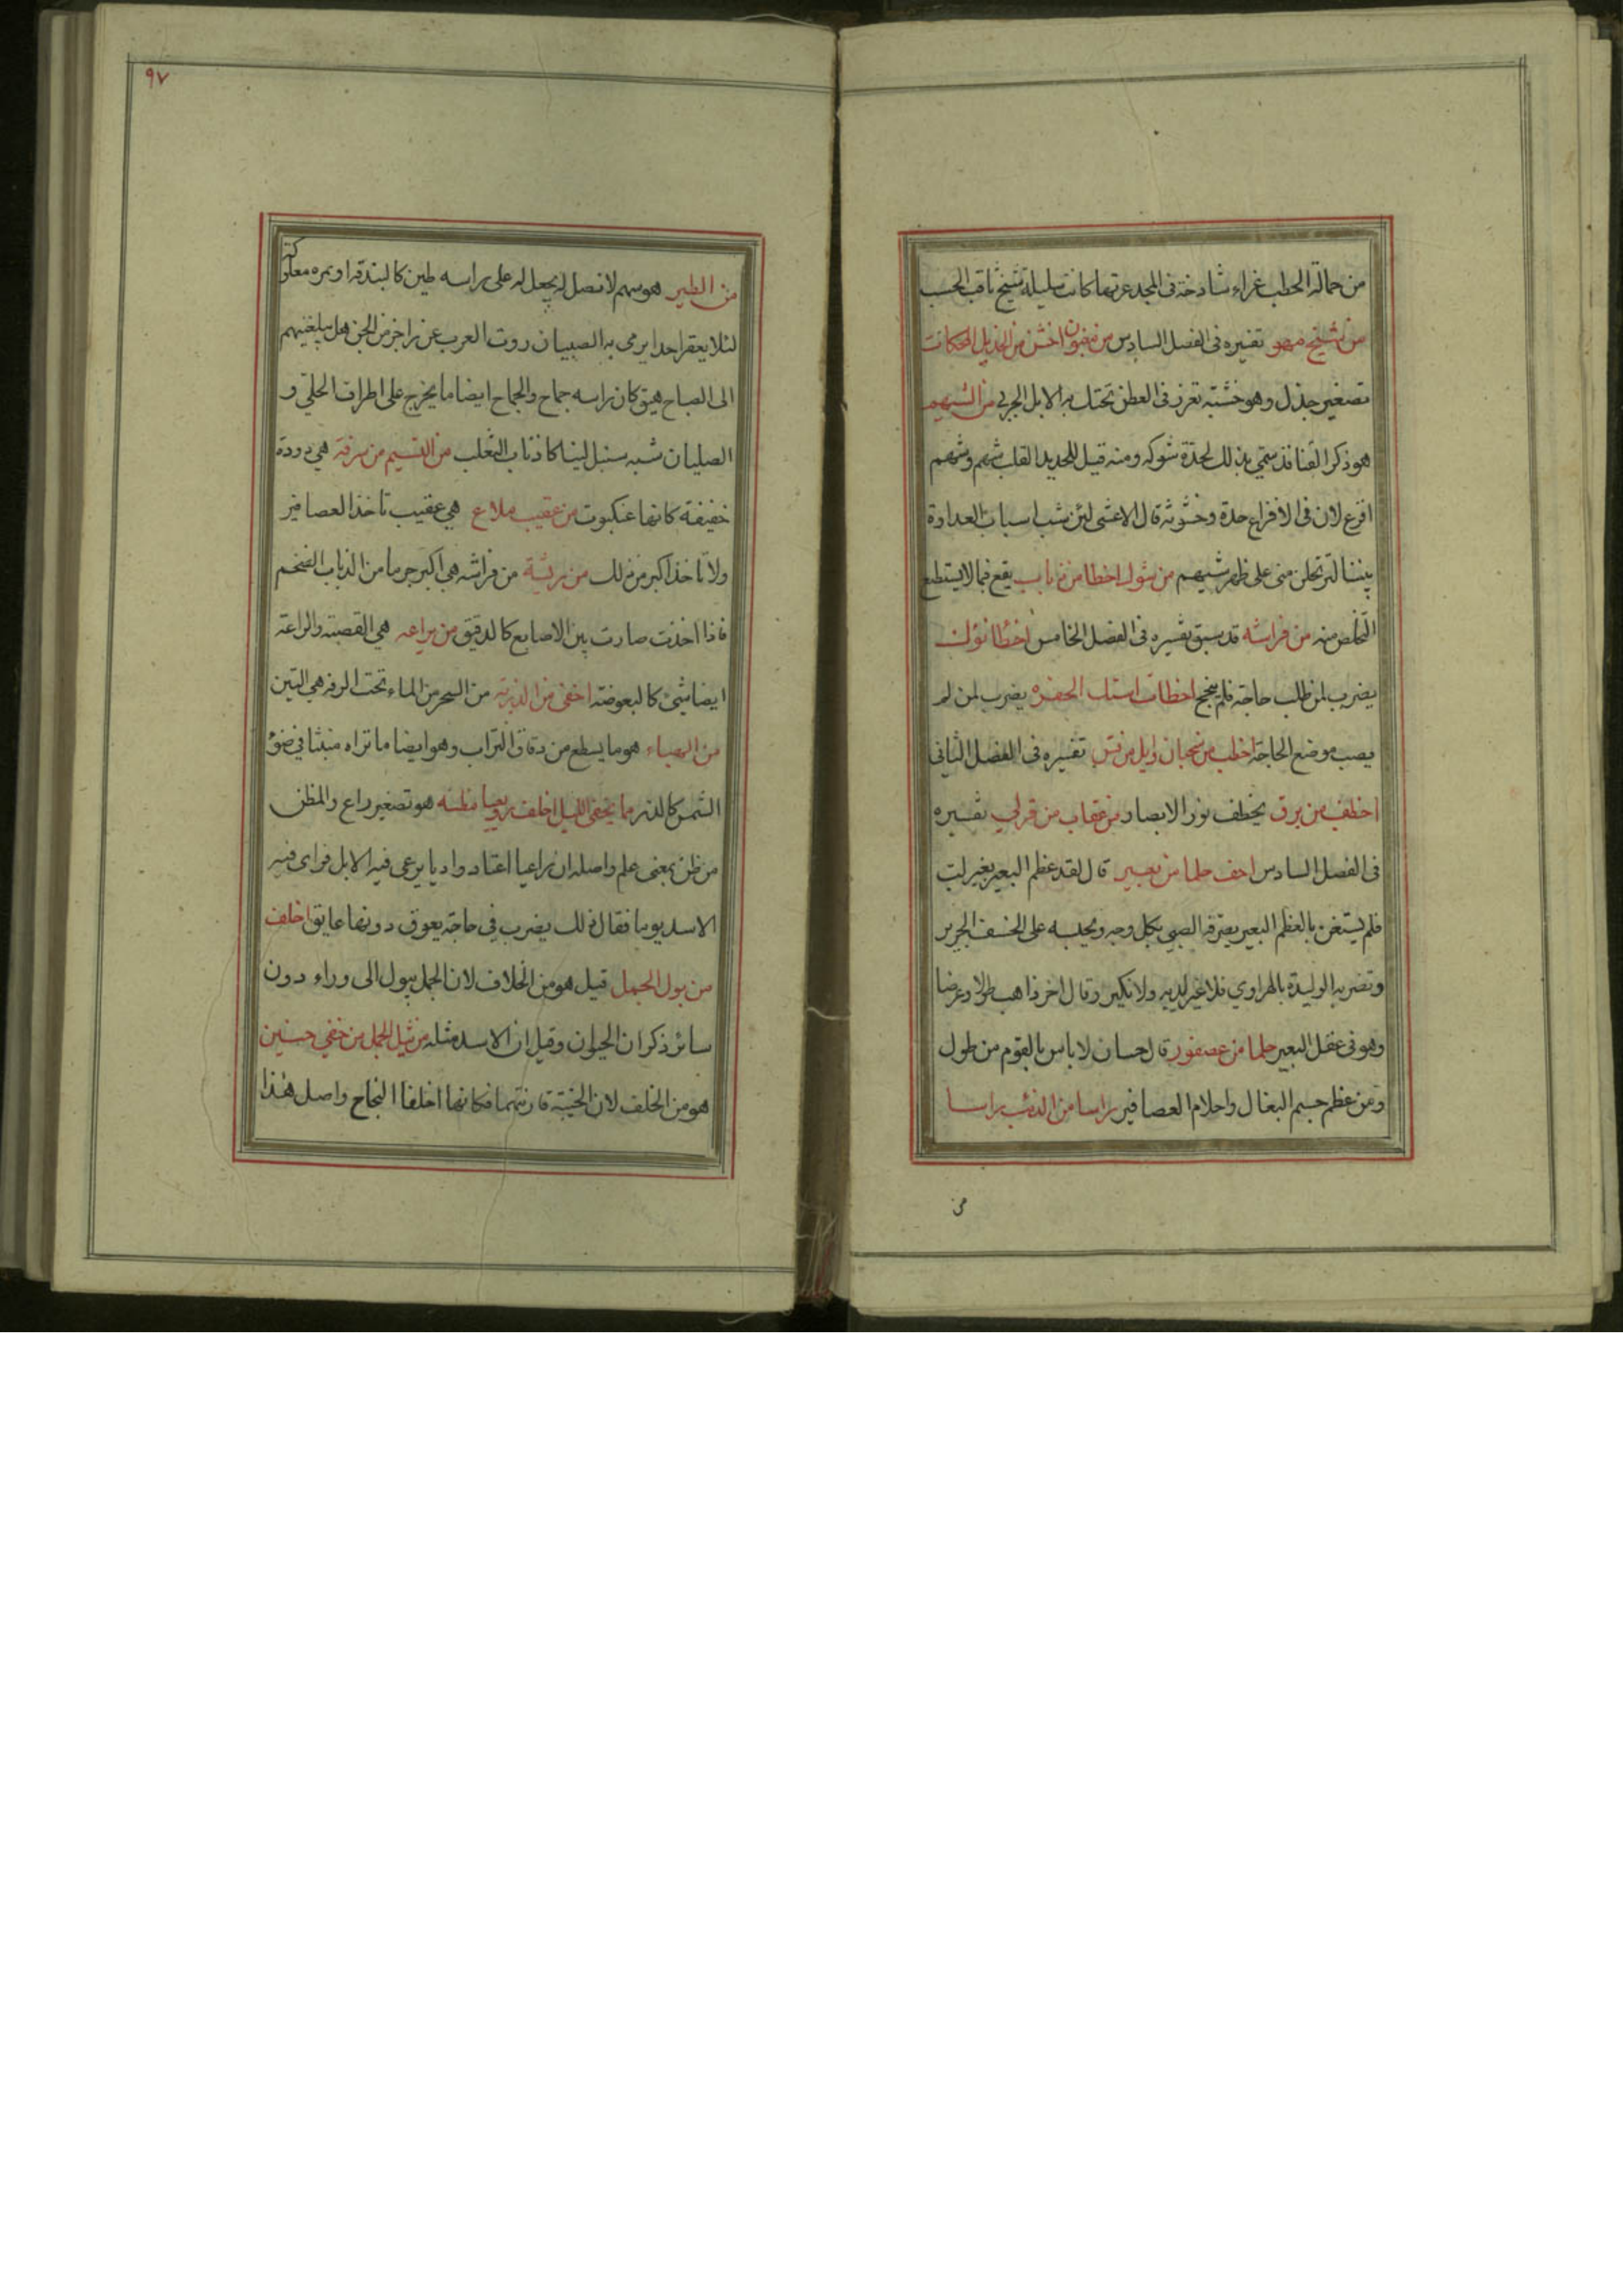 من حمالة الحطب غراء شادخة فى المجد غرتها كانت سليلة شيخ ثاقب الحسب
من شيخ مهو تفسيره فى الفصل السادس من مغبون اخشن من الجذيل المحكك كانت
تصغير جذل وهو خشبة تغرز فى العطن تحتك به الابل الجربى من الشيهم
هو ذكر القنافذ سمّي بذلك لحدة شوكه ومنه قيل للحديد القلب شهم وشهم
افزع لان فى الافزاع حدة وخشونة قال الاعشى لئن شب اسباب العداوة
بيننا لترتحلن منى على ظهر شيهم من شوك اخطا من ذباب يقع فيما لا يستطيع
التخلص منه من فراشة قد سبق تفسيره فى الفصل الخامس اخطا نؤك
يضرب لمن طلب حاجة فلم ينجح اخطات استك الحفرة يضرب لمن لم
يصب موضع الحاجة اخطب من سحبان وايل من قس تفسيره فى الفصل الثانى
اخطف من برق يخطف نور الابصار من عقاب من قرلى تفسيره
فى الفصل السادس اخف حلما من بعير قال لقد عظم البعير بغير لب
فلم يستغن بالعظم البعير يصرفه الصبي بكل وجه ويحبسه على الخسف الجرير
وتضربه الوليدة بالهراوي فلا غير لديه ولا نكير وقال اخر ذاهب طولا وعرضا
وهو فى عقل البعير حلما من عصفور قال حسان لا باس بالقوم من طول
ومن عظم جسم البغال واحلام العصافير راسا من الذئب راسا
من
٩٧
من الطير هو سهم لا نصل له يجعل له على راسه طين كالبندقة او تمرة معلوكة
لئلا يعقر احدا يرمى به الصبيان روت العرب عن راجز من الجن هل يبلغنيهم
الى الصباح هيق كان راسه جماح والجماح ايضا ما يخرج على اطراف الحلي و
الصليان شبه سنبل لينا كاذناب الثعلب من النسيم من سرفة هي دودة
خفيفة كانها عنكبوت من عقيب ملاع هي عقيب تاخذ العصافير
ولا تاخذ اكبر من ذلك من ريشة من فراشة هي اكبر جرما من الذباب الضخم
فاذا اخذت صارت بين الاصابع كالدقيق من يراعة هي القصبة واليراعة
ايضا شئ كالبعوضة اخفى من الذرة من السحر من الماء تحت الرفه هي التبن
من الهباء هو ما يسطع من دقاق التراب وهو ايضا ما تراه منبثا في ضوء
الشمس كالذر مما يخفى الليل اخلف رويعيا مظنه هو تصغير راع والمظن
من ظن بمعنى علم واصله ان راعيا اعتاد واديا يرعى فيه الابل فراى فيه
الاسد يوما فقال ذلك يضرب في حاجة يعوق دونها عايق اخلف
من بول الجمل قيل هو من الخلاف لان الجمل يبول الى وراء دون
سائر ذكران الحيوان وقيل ان الاسد مثله من ثيل الجمل من خفي حنين
هو من الخلف لان الخيبة قارنتهما فكانها اخلفا النجاح واصل هذا